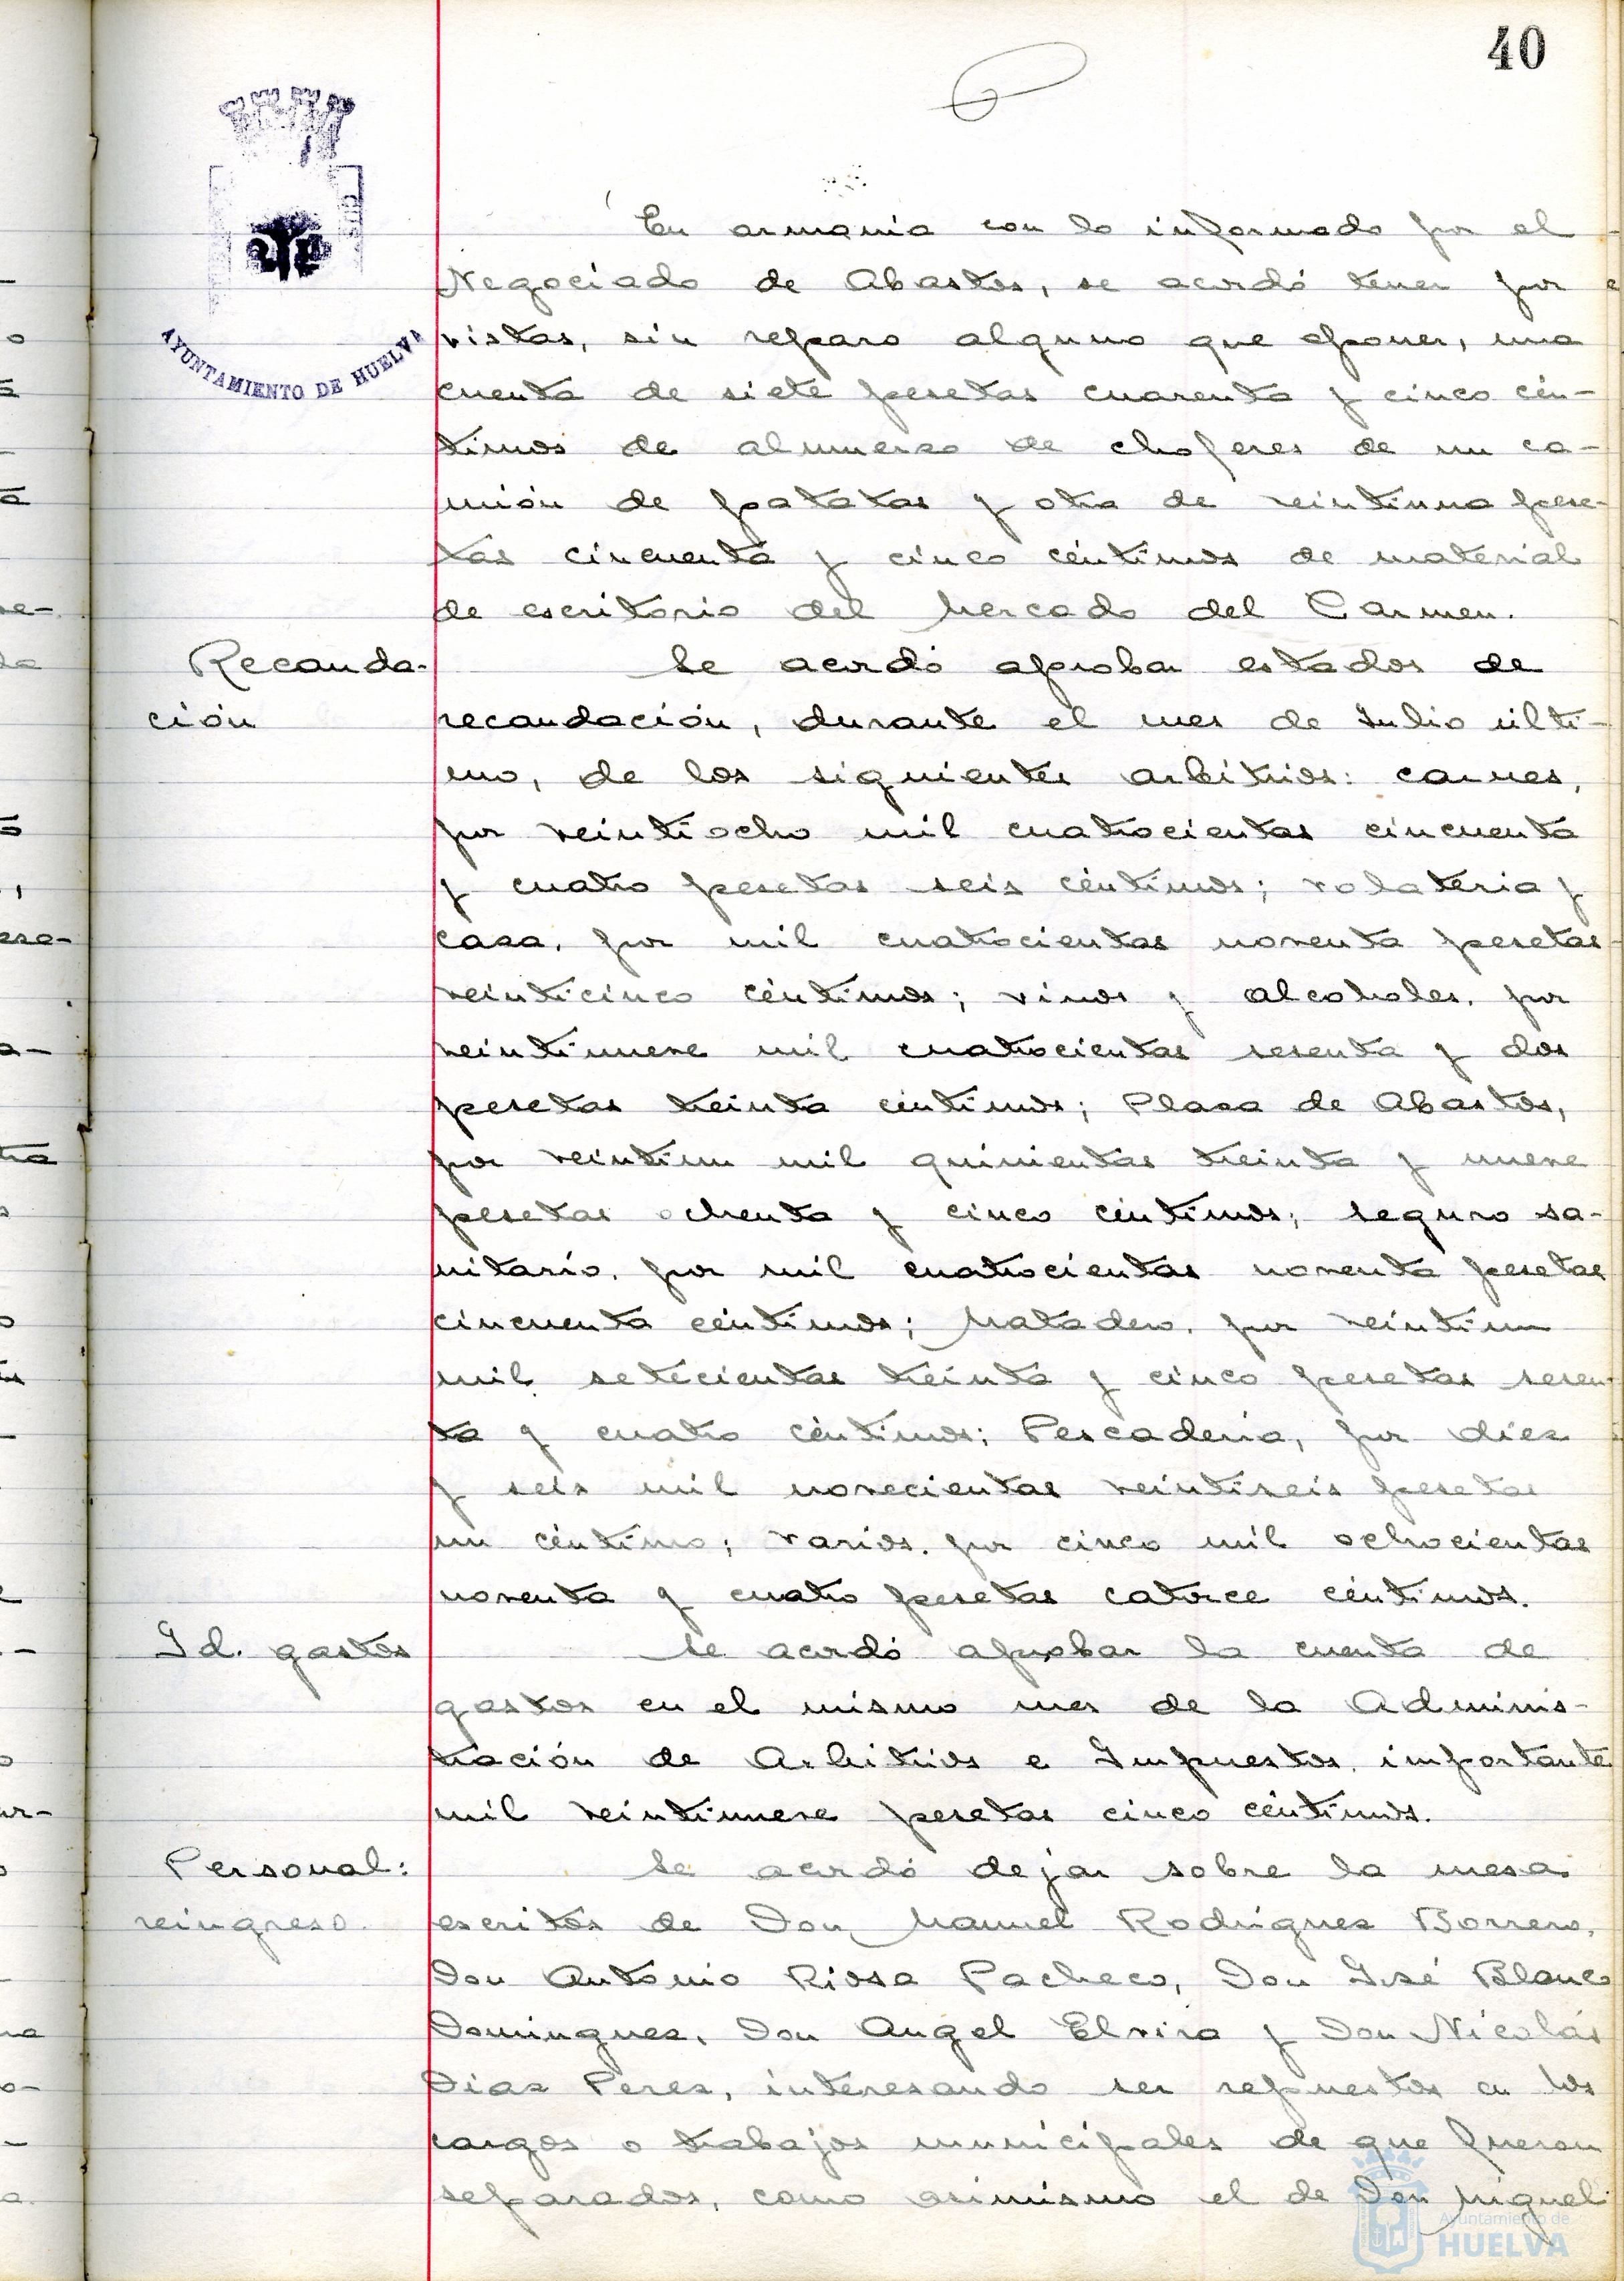 40
AYUNTAMIENTO DE HUELVA
En armonia con lo informado por el
Negociado de Abastos, se acordó tener por
vistas, sin reparo alguno que oponer, una
cuenta de siete pesetas cuarenta y cinco cén-
timos de almuerzo de choferes de un ca-
mión de patatas y otra de veintiuna pese-
tas cincuenta y cinco céntimos de material
de escritorio del Mercado del Carmen.
Recauda-
ción
Se acordó aprobar estados de
recaudación, durante el mes de Julio últi-
mo, de los siguientes arbitrios: carnes,
por veintiocho mil cuatrocientas cincuenta
y cuatro pesetas seis céntimos; volateria y
caza, por mil cuatrocientas noventa pesetas
veinticinco céntimos; vinos y alcoholes, por
veintinueve mil cuatrocientas sesenta y dos
pesetas treinta céntimos; Plaza de Abastos,
por veintiun mil quinientas treinta y nueve
pesetas ochenta y cinco céntimos; seguro sa-
nitario, por mil cuatrocientas noventa pesetas
cincuenta céntimos; Matadero, por veintiun
mil setecientas treinta y cinco pesetas sesen-
ta y cuatro céntimos; Pescaderia, por diez
y seis mil novecientas veintiseis pesetas
un céntimo; varios, por cinco mil ochocientas
noventa y cuatro pesetas catorce céntimos.
Id. gastos
Se acordó aprobar la cuenta de
gastos en el mismo mes de la Adminis-
tración de Arbitrios e Impuestos, importante
mil veintinueve pesetas cinco céntimos.
Personal:
reingreso.
Se acordó dejar sobre la mesa
escritos de Don Manuel Rodriguez Borrero,
Don Antonio Rioja Pacheco, Don José Blanco
Dominguez, Don Angel Elvira y Don Nicolás
Diaz Perez, interesando ser repuestos en los
cargos o trabajos municipales de que fueron
separados, como asimismo el de Don Miguel
Ayuntamiento de
HUELVA